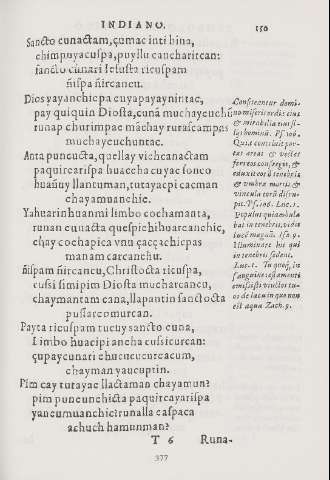 INDIANO.
150
Sancto cunactam, çumac inti hina,
chimpuyacuspa, puyllu cancharircan:
sancto cunari Iesusta ricuspam
ñispa ñircancu.
Dios yayanchicpa cuyapayayñintac,
pay quiquin Diosta, cunã muchayeuchũ
runap churimpae mãchay rurascampas
muchaycuchuntac.
Anta puncucta, quellay vichcanactam
paquircarispa huaccha cuyac sonco
huañuy llantuman, tutayacpi cacman
chayamuanchic.
Yahuarinhuanmi limbo cochamanta,
runan cunacta quespichihuarcanchic,
chay cochapica vnu çacçachicpas
manam carcanchu.
ñispam ñircancu, Christocta ricuspa,
cussi simipim Diosta mucharcancu,
chaymantam cana, llapantin sanctocta
pussarcomurcan.
Payta ricuspam tucuy sancto cuna,
Limbo huacipi ancha cussicurcan:
çupaycunari chucucucurcacum,
chayman yaucuptin.
Pim cay tutayac llactaman chayamun?
pim puncunchicta paquircayarispa
yaucumuanchic? runalla caspaca
achuch hamunman?
T 6 Runa-
Confiteantur domi-
no misericordię eius
& mirabilia eius fi-
lijs hominũ. Ps. 106.
Quia contriuit por-
tas æreas & vectes
ferreos confregit, &
eduxit eos è tenebris
& vmbra mortis &
vincula eorũ disru-
pit. Ps. 106. Luc. 1.
Populus qui ambula
bat in tenebris, vidit
lucẽ magnã. Isa. 9.
Illuminare his qui
in tenebris sedent.
Luc. 1. Tu quoq; in
sanguine testamenti
emisisti vinctos tu-
os de lacu in quo non
est aqua Zach. 9.
377